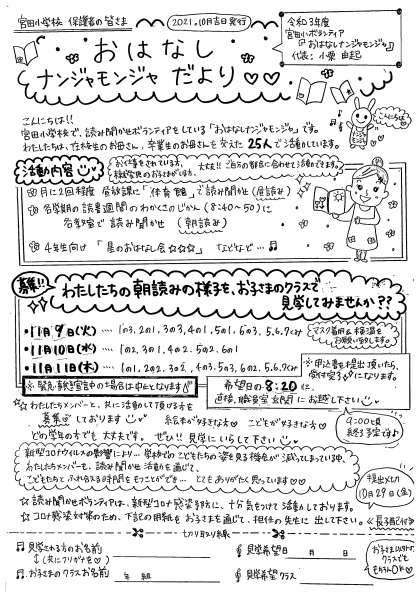 宮田小学校 保護者の皆さま
2021.10月吉日発行
令和3年度
宮田小ボランティア
『おはなしナンジャモンジャ』
代表:小栗 由起
おはなし
ナンジャモンジャ だより♡♡
こんにちは!!
宮田小学校で、読み聞かせボランティアをしている「おはなしナンジャモンジャ」です。
わたしたちは、在校生のお母さん、卒業生のお母さんを交えた 25人で活動しています。
こんにちは
活動内容
お仕事をされている方、
未就学児のお子さんがいる方、
大丈夫!!ご自分の都合に合わせて活動できます。
月に2回程度 昼放課に「体育館」で読み聞かせ(昼読み)
各学期の読書週間のわかくさのじかん(8:40~50)に
各教室で読み聞かせ (朝読み)
4年生向け「星のおはなし会☆☆☆」 などなど…♬
募集!!
わたしたちの朝読みの様子を、お子さまのクラスで
見学してみませんか??
・11月9日(火)…. 1の3.2の1.3の3.4の1.5の1.6の3.5.6.7くみ
・11月10日(水)…. 1の1.3の1.4の2.5の2.6の1
・11月11日(木)…. 1の2.2の2.3の2.4の3.5の3.6の2.5.6.7くみ
マスク着用&検温を
お願い致します。
※緊急事態宣言中の場合は中止となります
希望日の8:20に
直接、職員室玄関にお越し下さい♡
※申込書を提出頂いたら、
受付完了となります。
9:00頃
終了予定です♪
☆わたしたちメンバーと、共に活動して頂ける方を
募集しております 絵本が好きな方♡ こどもが好きな方♡
どの学年の方でも大丈夫です。ぜひ!!見学にいらして下さい
新型コロナウイルスの影響により…学校でのこどもたちの姿を見る機会が減ってしまっている中、
わたしたちメンバーも、読み聞かせ活動を通じて、
こどもたちとふれ合える時間をもつことができ…とてもありがたく思っています♡♡
提出〆切
10月29日(金)
☆読み聞かせボランティアは、新型コロナ感染予防に、十分気をつけて活動しております。
☆コロナ感染対策のため、下記の用紙をお子さまを通じて、担任の先生に出して下さい。
≪長子配付≫
切り取り線
♬見学される方のお名前
(共にフリガナを♡)
♬お子さまのクラスお名前 年 組
見学希望日 月 日
見学希望クラス
お子さま以外の
クラスでも
もちろんOK♪